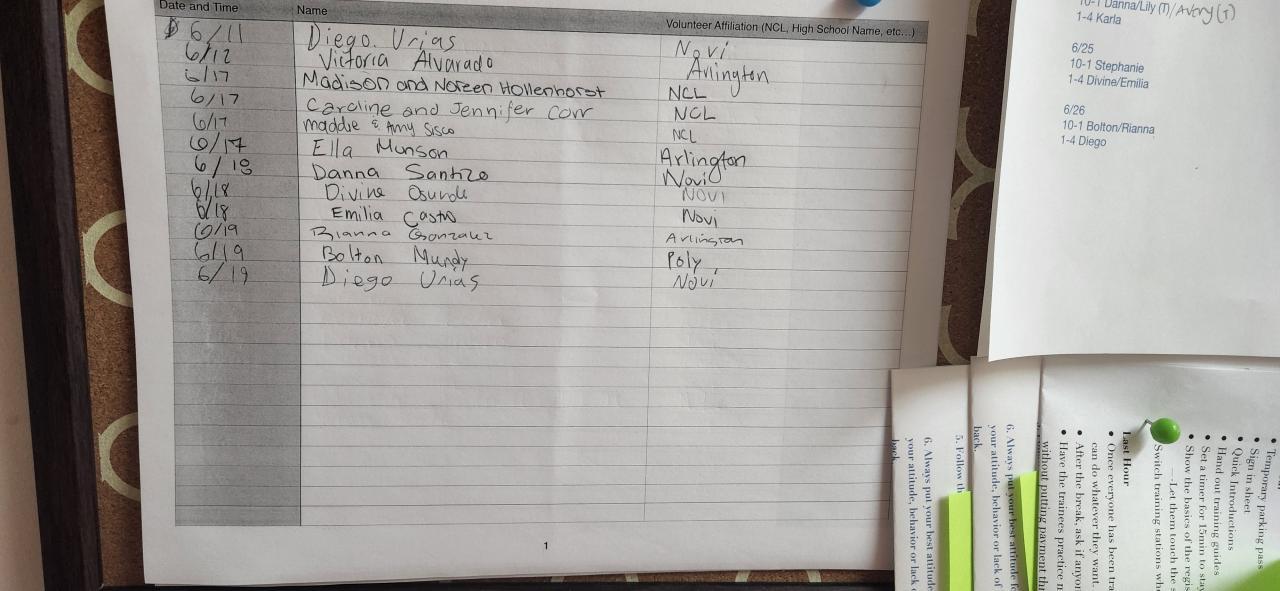 Date and Time Name Volunteer Affiliation (NCL, High School Name, etc...)
6/11 Diego Urias Novi
6/12 Victoria Alvarado Arlington
6/17 Madison and Noreen Hollenhorst NCL
6/17 Caroline and Jennifer Corr NCL
6/17 Maddie & Amy Sisco NCL
6/17 Ella Munson Arlington
6/18 Danna Santizo Novi
6/18 Divine Novi
6/18 Emilia Castro Novi
6/19 Rianna Gonzalez Arlington
6/19 Bolton Mundy Poly
6/19 Diego Urias Novi
1
10-1 Danna/Lily (T)/Avery (T)
1-4 Karla
6/25
10-1 Stephanie
1-4 Divine/Emilia
6/26
10-1 Bolton/Rianna
1-4 Diego
6. Always put your best attitude
your attitude, behavior or lack
back.
5. Follow
6. Always put your best attitude
your attitude, behavior or lack of
back.
Temporary parking pass
Sign in sheet
Quick Introductions
Hand out training guides
Set a timer for 15min to
Show the basics of the
—Let them touch the
Switch training stations
Last Hour
Once everyone has been
can do whatever they want.
After the break, ask if
Have the trainees practice
without putting payment